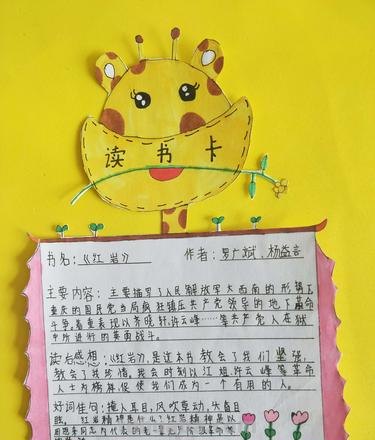 读书卡
书名:《红岩》 作者:罗广斌、杨益言
主要内容:主要描写了人民解放军大西南的形势下
重庆的国民党当局疯狂镇压共产党领导的地下革命
斗争。着重表现以齐晓轩、许云峰……等共产党人在狱
中所进行的英勇战斗。
读后感想:《红岩》,是这本书教会了我们坚强,
教会了我珍惜。我会时刻以江姐、许云峰等革命
人士为榜样,促使我们成为一个有用的人。
好词佳句:撞人耳目,风吹草动,头昏目
眩。红岩精神是什么?红岩精神是以
周恩来同志为代表的老一辈无产阶级革命家